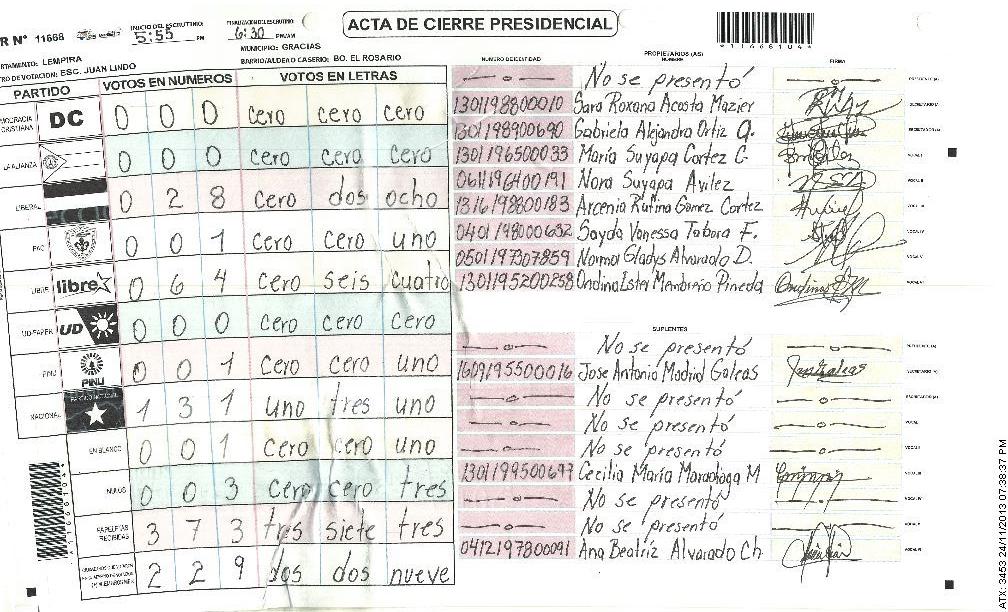 ACTA DE CIERRE PRESIDENCIAL
R N° 11668
INICIO DEL ESCRUTINIO:
5:55 PM
FINALIZACION DEL ESCRUTINIO:
6:30 PM/AM
*1166810 4*
MUNICIPIO: GRACIAS
RTAMENTO: LEMPIRA
BARRIO/ALDEA O CASERIO: BO. EL ROSARIO
RO DE VOTACION: ESC. JUAN LINDO
PARTIDO VOTOS EN NUMEROS VOTOS EN LETRAS
DC 0 0 0 cero cero cero
LA ALIANZA 0 0 0 cero cero cero
LIBERAL 0 2 8 cero dos ocho
PAC 0 0 1 cero cero uno
LIBRE libre 0 6 4 cero seis cuatro
UD-FAPER UD 0 0 0 cero cero cero
PINU PINU 0 0 1 cero cero uno
NACIONAL 1 3 1 uno tres uno
EN BLANCO 0 0 1 cero cero uno
NULOS 0 0 3 cero cero tres
PAPELETAS RECIBIDAS 3 7 3 tres siete tres
2 2 9 dos dos nueve
NUMERO DE IDENTIDAD PROPIETARIOS (AS) NOMBRE FIRMA
No se presentó PRESIDENTE (A)
1301198800010 Sara Roxana Acosta Mazier SECRETARIO (A)
1301198900690 Gabriela Alejandra Ortiz Q. ESCRUTADOR (A)
1301196500033 María Suyapa Cortez C VOCAL I
0611196400191 Nora Suyapa Avilez VOCAL II
1316198800183 Arcenia Rufina Gomez Cortez VOCAL III
0401198000632 Sayda Vanessa Tabora F. VOCAL IV
0501197307859 Norma Gladys Alvarado D. VOCAL V
1301195200258 Ondina Ester Membreño Pineda VOCAL VI
SUPLENTES
No se presentó PRESIDENTE (A)
1609195500016 Jose Antonio Madrid Galeas SECRETARIO (A)
No se presentó ESCRUTADOR (A)
No se presentó VOCAL I
No se presentó VOCAL II
1301199500697 Cecilia María Maradiaga M VOCAL III
No se presentó VOCAL IV
No se presentó VOCAL V
0412197800091 Ana Beatriz Alvarado Ch VOCAL VI
ATX: 3453 24/11/2013 07:38:37 PM